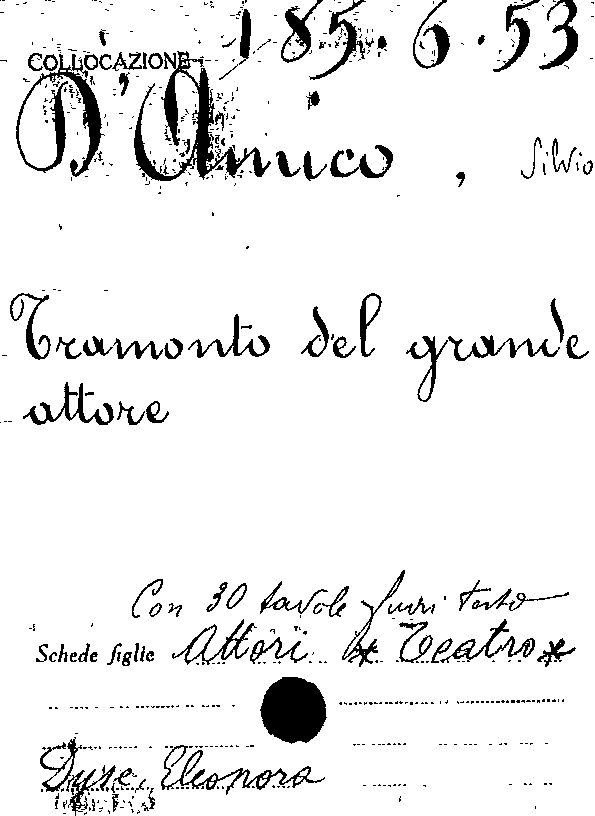 COLLOCAZIONE 185.6.53
D'Amico, Silvio
Tramonto del grande
attore
Con 30 tavole fuori testo
Schede figlie Attori * Teatro *
Duse, Eleonora